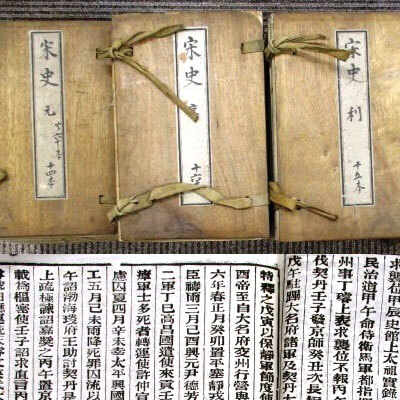 宋史 利
十五本
宋史 亨
十六本
宋史 元
十四本
求襲位甲辰史館上太祖實錄
民治道甲午命侍衛馬軍都指
州事丁璿上表求襲位不報丙午
伐契丹壬子發京師癸丑次長垣
戊午駐蹕大名府諸軍及契丹大
特釋之戊寅以保靜軍節度使
酉帝至自大名府交州行營與
六年春正月癸卯置平塞靜戎
臣禱雨三月己酉興元尹德芳
二軍丁巳高昌國遣使來貢壬
療軍士多死者轉運使許仲宣
慮囚夏四月辛未幸太平興國
工五月己未雨降死罪囚流以
午詔渤海琰府王助討契丹是
上疏極諫詔嘉獎之丙午置京
載樞密使壬子詔求直言丙